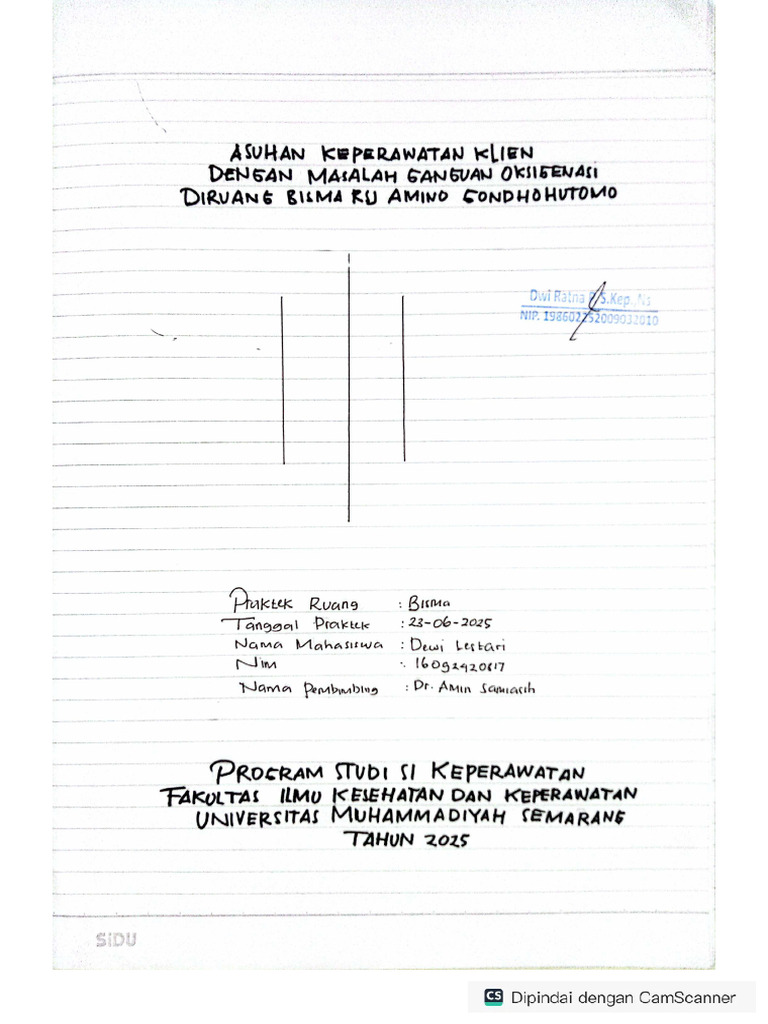 ASUHAN KEPERAWATAN KLIEN
DENGAN MASALAH GANGUAN OKSIGENASI
DIRUANG BISMA RSJ AMINO GONDHOHUTOMO
Dwi Ratna S.Kep.,Ns
NIP. 198602252009032010
Praktek Ruang : Bisma
Tanggal Praktek : 23-06-2025
Nama Mahasiswa : Dewi Lestari
Nim : G1609242
Nama Pembimbing : Dr. Amin Samiasih
PROGRAM STUDI S1 KEPERAWATAN
FAKULTAS ILMU KESEHATAN DAN KEPERAWATAN
UNIVERSITAS MUHAMMADIYAH SEMARANG
TAHUN 2025
SiDU
CS Dipindai dengan CamScanner